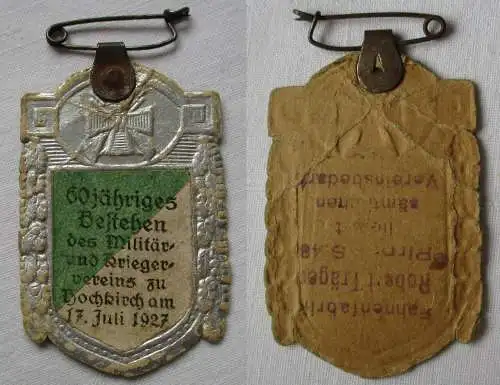 60jähriges
Bestehen
des Militär-
und Krieger-
vereins zu
Hochkirch am
17. Juli 1927
Fahnenfabrik
Robert Träger
Pirna S. 48
liefert
sämtlichen
Vereinsbedarf